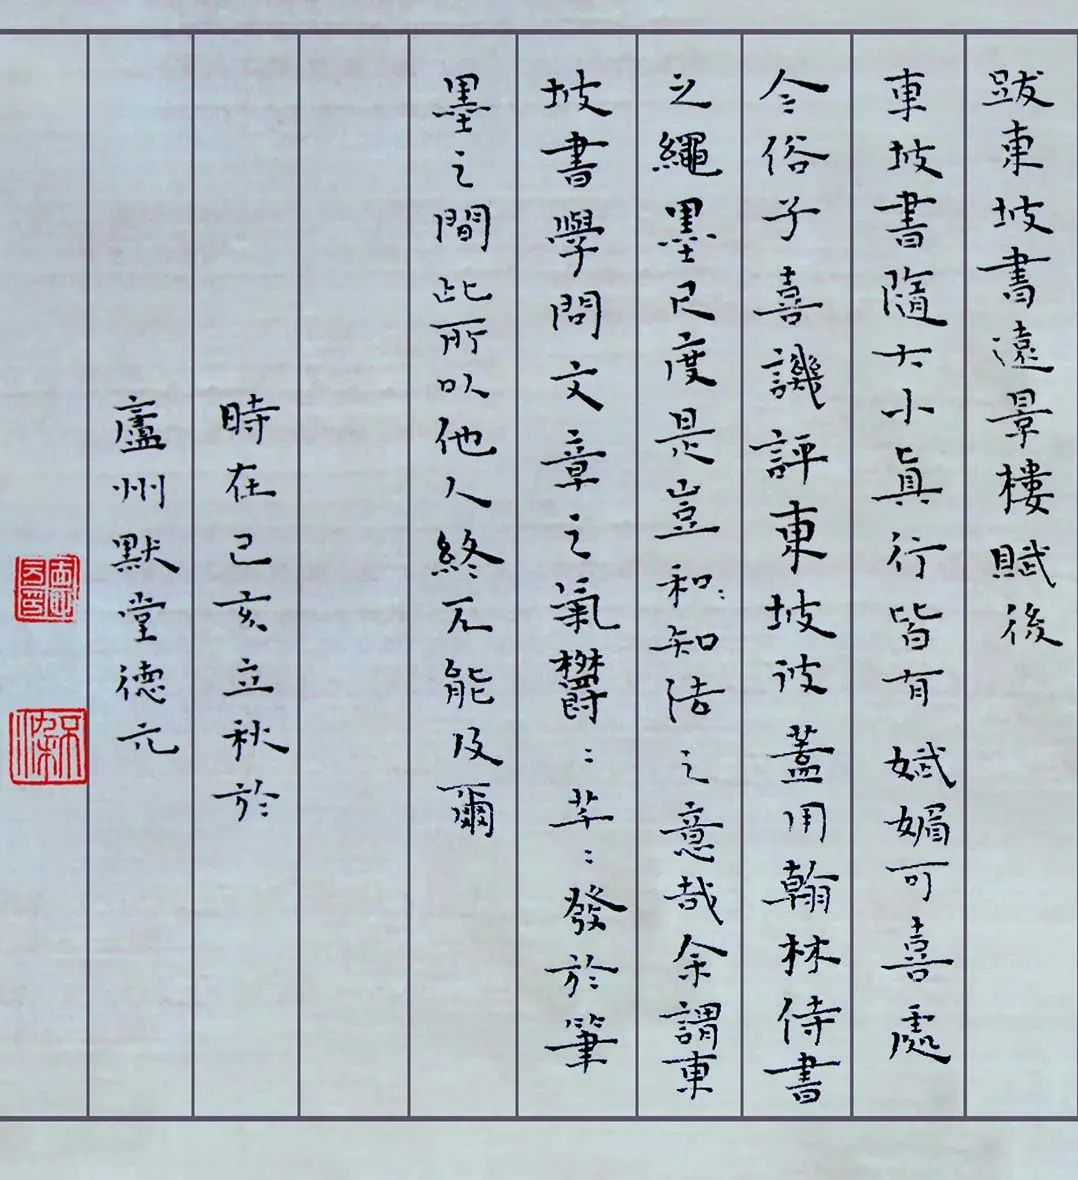 跋東坡書遠景樓賦後
東坡書隨大小真行皆有嫵媚可喜處
今俗子喜譏評東坡彼蓋用翰林侍書
之繩墨尺度是豈和:知法之意哉余謂東
坡書學問文章之氣欝:芊:發於筆
墨之間此所以他人終不能及爾
時在己亥立秋於
廬州默堂德元